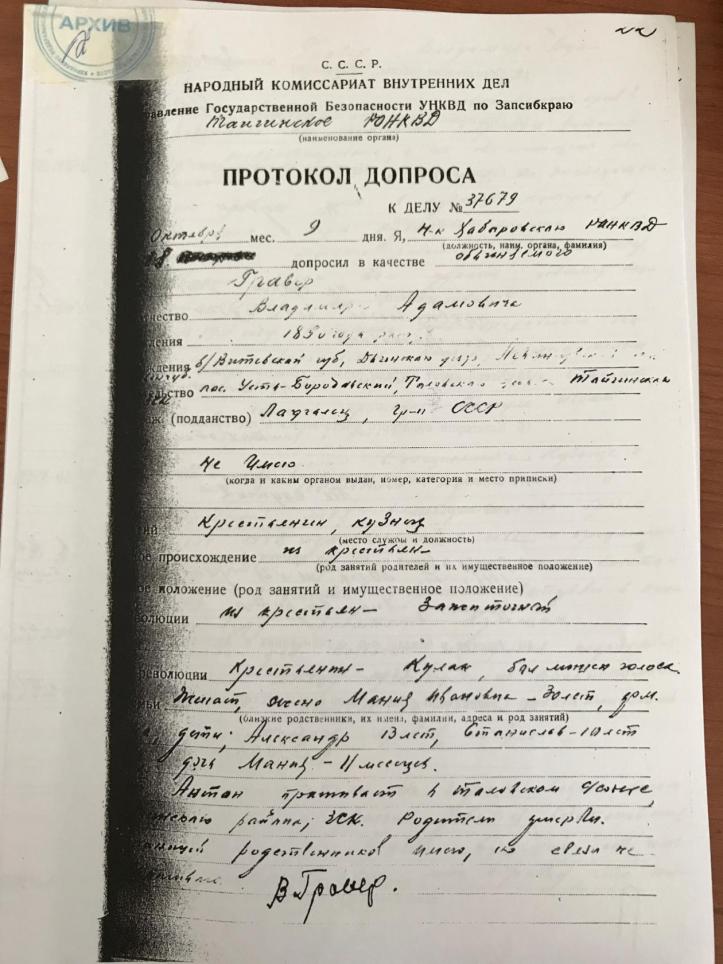 АРХИВ
22
С. С. С. Р.
НАРОДНЫЙ КОМИССАРИАТ ВНУТРЕННИХ ДЕЛ
авление Государственной Безопасности УНКВД по Запсибкраю
РОНКВД
(наименование органа)
ПРОТОКОЛ ДОПРОСА
К ДЕЛУ № 37679
Октября мес. 9 дня. Я, Н-к РОНКВД
(должность, наим. органа, фамилия)
допросил в качестве обвиняемого
Гравер
чество Владимир Адамович
дения 1890 года
ждения б/Витебской губ,
тельство пос. Усть-
аж. (подданство) гр-н СССР
Не имею
(когда и каким органом выдан, номер, категория и место приписки)
ий Крестьянин, кузнец
(место службы и должность)
ое происхождение из крестьян
(род занятий родителей и их имущественное положение)
ое положение (род занятий и имущественное положение)
волюции из крестьян – Зажиточный
революции Крестьянин – Кулак, был лишен голоса.
ьи Женат, жена Мария Ивановна – 30 лет, дом.
(близкие родственники, их имена, фамилии, адреса и род занятий)
дети; Александр 13 лет, Станислав – 10 лет
дочь Мария – 11 месяцев.
Антон проживает в
района, ЗСК. Родители умерли.
родственников имею, но связи не
В Гравер.